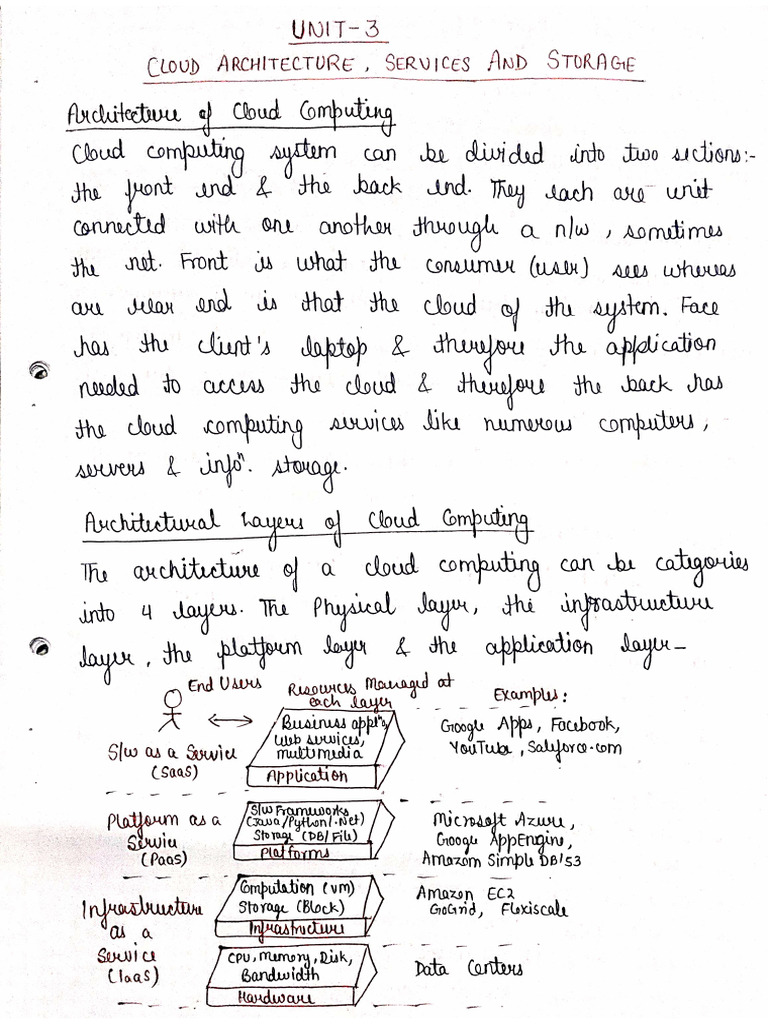 UNIT-3
CLOUD ARCHITECTURE, SERVICES AND STORAGE
Architecture of Cloud Computing
Cloud computing system can be divided into two sections:-
the front end & the back end. They each are unit
connected with one another through a n/w, sometimes
the net. Front is what the consumer (user) sees whereas
are rear end is that the cloud of the system. Face
has the client's laptop & therefore the application
needed to access the cloud & therefore the back has
the cloud computing services like numerous computers,
servers & infoⁿ. storage.
Architectural Layers of Cloud Computing
The architecture of a cloud computing can be categories
into 4 layers. The Physical layer, the infrastructure
layer, the platform layer & the application layer-
End Users
Resources Managed at
each layer
Examples:
S/w as a Service
(SaaS)
Business applⁿs,
Web services,
multimedia
Application
Google Apps, Facebook,
YouTube, Salyforce.com
Platform as a
Serviu
(PaaS)
S/w Frameworks
(Java/Python/.Net)
Storage (DB/File)
Platforms
Microsoft Azure,
Google AppEngine,
Amazom Simple DB/S3
Infrastructure
as a
Service
(IaaS)
Computation (vm)
Storage (Block)
Infrastructure
Amazon EC2
GoGrid, Flexiscale
CPU, Memory, Disk,
Bandwidth
Hardware
Data Centers